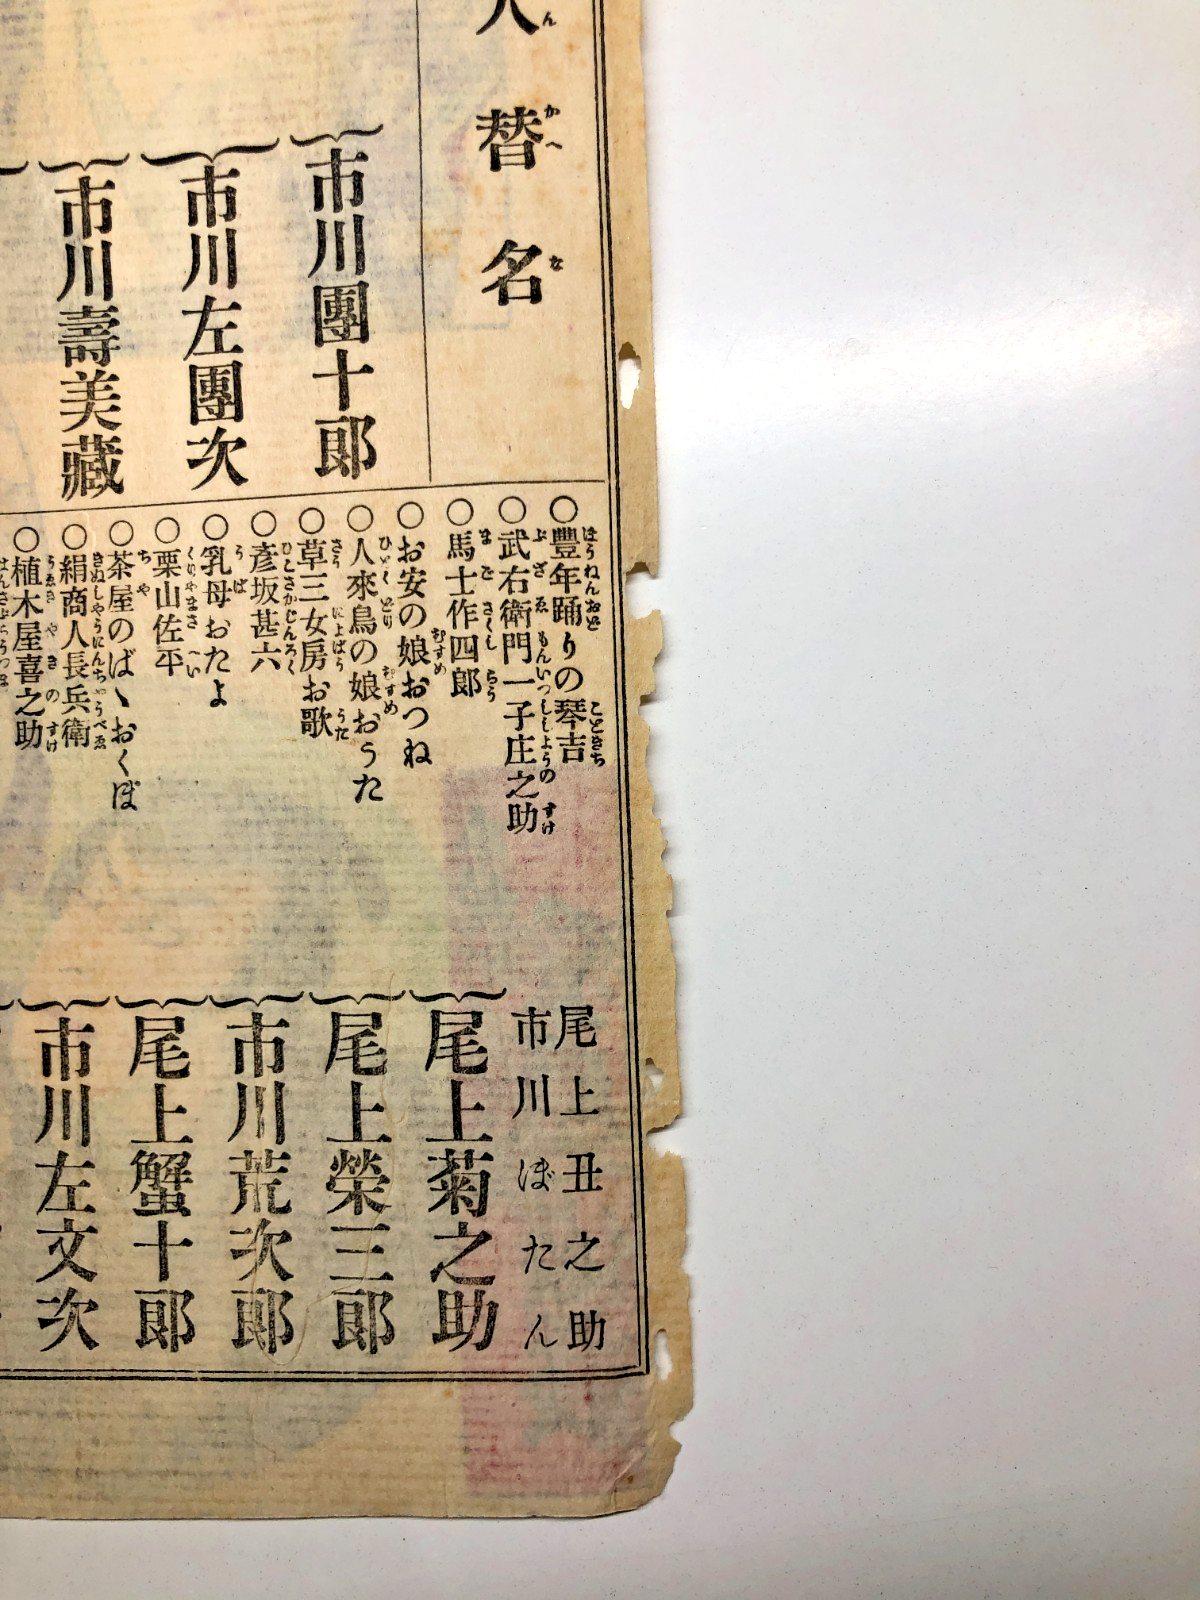 人替名
市川團十郎
市川左團次
市川壽美藏
○豐年踊りの琴吉
○武右衛門一子庄之助
○馬士作四郎
○お安の娘おつね
○人來鳥の娘おうた
○草三女房お歌
○彥坂甚六
○乳母おたよ
○栗山佐平
○茶屋のばゝおくぼ
○絹商人長兵衛
○植木屋喜之助
尾上丑之助
市川ぼたん
尾上菊之助
尾上榮三郎
市川荒次郎
尾上蟹十郎
市川左文次